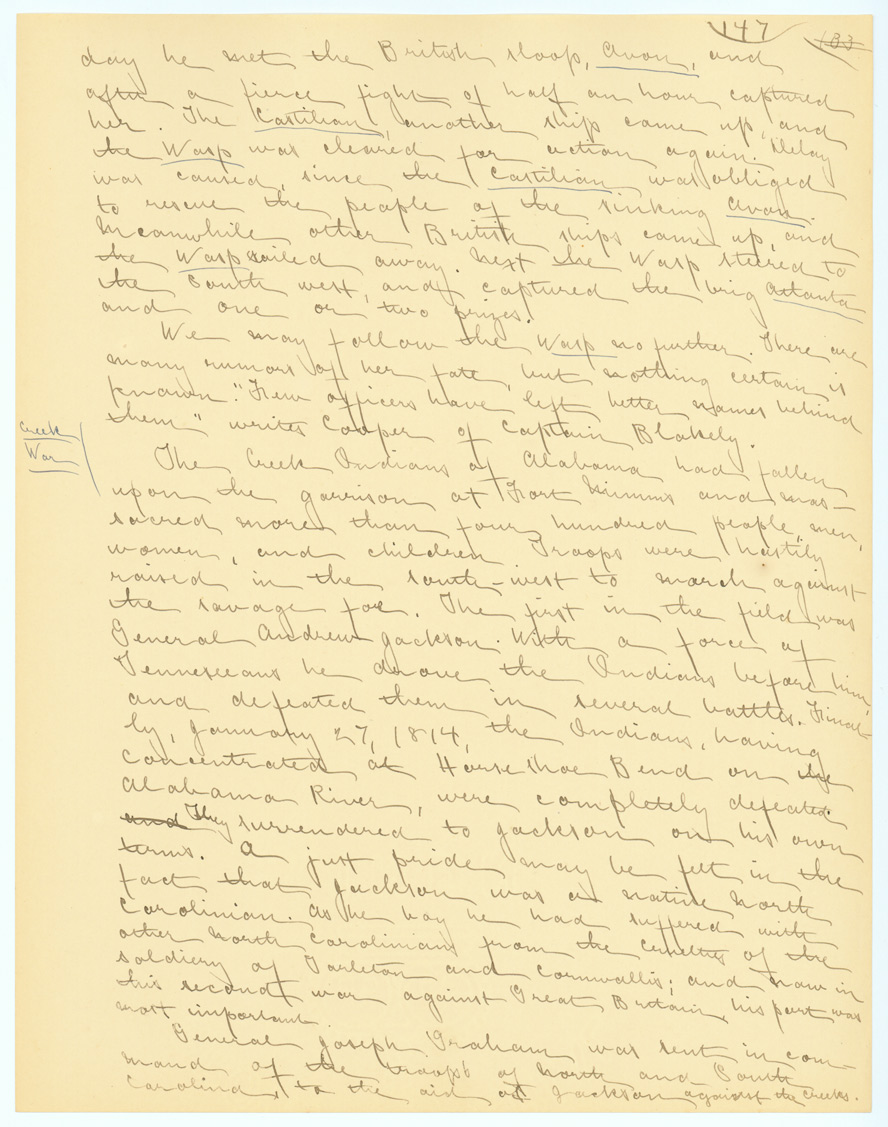 147 133
day he met the British sloop, Avon, and
after a fierce fight of half an hour captured
her. The Castilian, another ship came up, and
the Wasp was cleared for action again. Delay
was caused, since the Castilian was obliged
to rescue the people of the sinking Avon.
Meanwhile other British ships came up, and
the Wasp sailed away. Next the Wasp steered to
the South west, and captured the brig Atlanta
and one or two prizes.
We may follow the Wasp no further. There are
many rumors of her fate, but nothing certain is
known. "Few officers have left better names behind
them" writes Cooper of Captain Blakely.
Creek
War
The Creek Indians of Alabama had fallen
upon the garrison at Fort Mimms and mas-
sacred more than four hundred people, men,
women, and children. Troops were hastily
raised in the south-west to march against
the savage foe. The first in the field was
General Andrew Jackson. With a force of
Tennesseeans he drove the Indians before him,
and defeated them in several battles. Final-
ly, January 27, 1814, the Indians, having
concentrated at Horse Shoe Bend on the
Alabama River, were completely defeated.
and They surrendered to Jackson on his own
terms. A just pride may be felt in the
fact that Jackson was a native North
Carolinian. As he boy he had suffered with
other North Carolinians from the cruelties of the
soldiery of Tarleton and Cornwallis; and now in
this second war against Great Britain, his part was
most important.
General Joseph Graham was sent in com-
mand of the troops of North and South
Carolina, to the aid of Jackson against the Creeks.